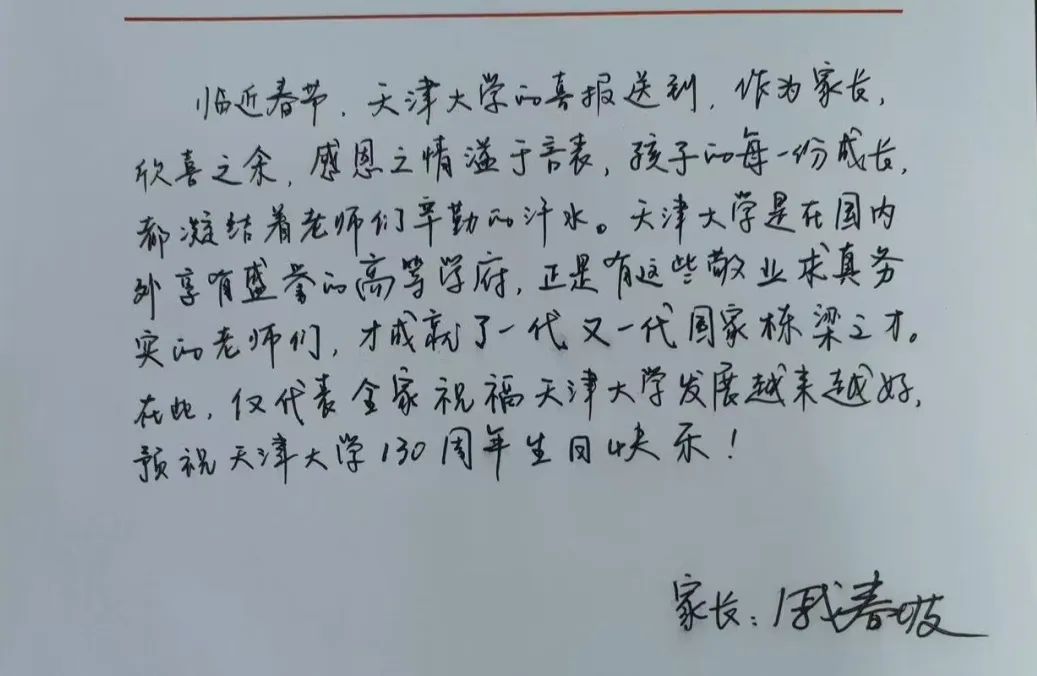 临近春节，天津大学的喜报送到，作为家长，
欣喜之余，感恩之情溢于言表，孩子的每一份成长，
都凝结着老师们辛勤的汗水。天津大学是在国内
外享有盛誉的高等学府，正是有这些敬业求真务
实的老师们，才成就了一代又一代国家栋梁之才。
在此，仅代表全家祝福天津大学发展越来越好，
预祝天津大学130周年生日快乐！
家长：